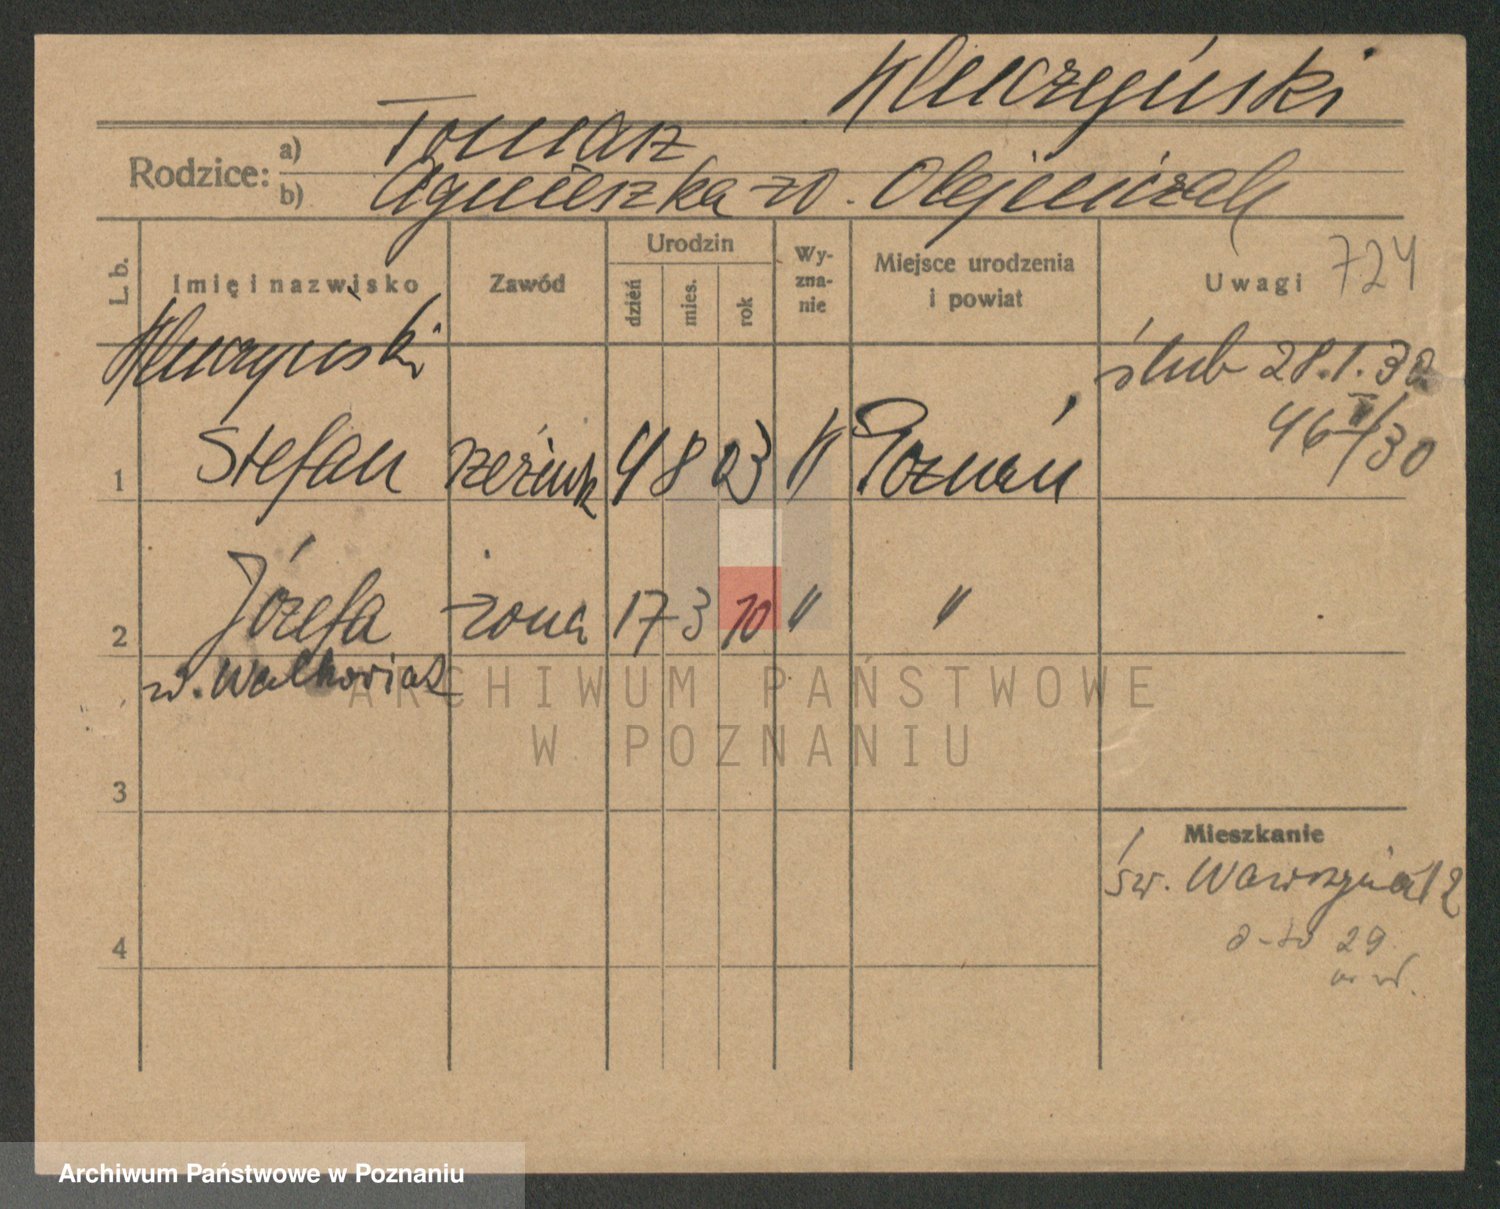 Kluczyński
Rodzice: a) Tomasz
b) Agnieszka z d. Olejniczak
L. b. Imię i nazwisko Zawód Urodzin dzień mies. rok Wy-zna-nie Miejsce urodzenia i powiat Uwagi 724
Kluczyński ślub 28.I.30
46 /30
1 Stefan rzeźnik 4 8 03 k Poznań
2 Józefa żona 17 3 10 " "
z d.
ARCHIWUM PAŃSTWOWE
W POZNANIU
3
Mieszkanie
św. Wawrzyńca 12
4
29
Archiwum Państwowe w Poznaniu